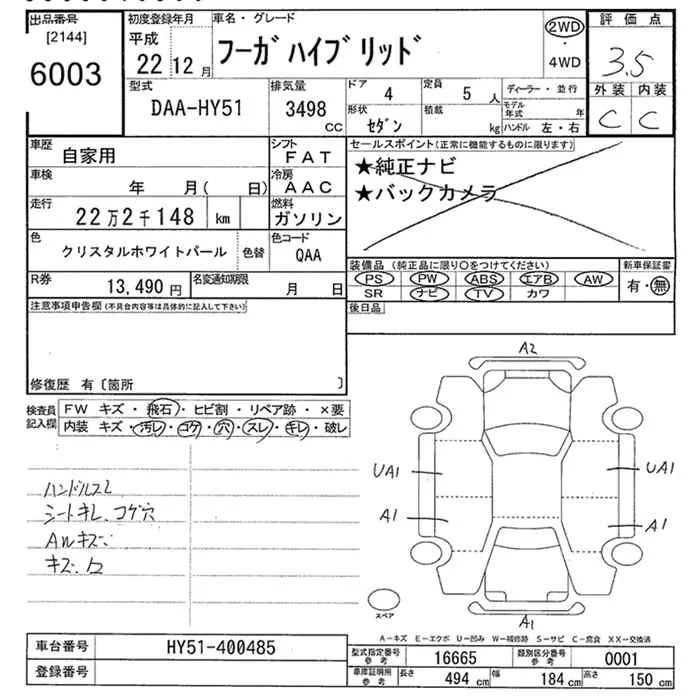 出品番号
[2144]
6003
初度登録年月
平成
22 12月
車名・グレード
フーガハイブリッド
2WD
・
4WD
評価点
3.5
外装 内装
C C
型式
DAA-HY51
排気量
3498
CC
ドア
4
定員
5 人
形状
セダン
積載
kg
ディーラー・並行
モデル年式 年
ハンドル 左・右
車歴
自家用
シフト
FAT
車検
年 月( 日)
冷房
AAC
走行
22万2千148 km
燃料
ガソリン
色
クリスタルホワイトパール
色替
色コード
QAA
R券
13,490 円
名変通知期限
月 日
セールスポイント(正常に機能するものに限ります)
★純正ナビ
★バックカメラ
装備品 (純正品に限り○をつけてください)
新車保証書
PS PW ABS エアB AW
SR ナビ TV カワ
有・無
後日品
注意事項申告欄(不具合内容等は具体的に記入して下さい)
修復歴 有〔箇所 〕
検査員記入欄
FW キズ・飛石・ヒビ割・リペア跡・×要
内装 キズ・汚レ・コゲ・穴・スレ・キレ・破レ
ハンドルスレ
シートキレ、コゲ穴
AWキズ
キズ、凹
A2
UA1
UA1
A1
A1
A1
スペア
A-キズ E-エクボ U-凹み W-補修跡 S-サビ C-腐食 XX-交換済
車台番号
HY51-400485
登録番号
型式指定番号
参考
16665
類別区分番号
参考
0001
車庫証明用
参考
長さ
494 cm
幅
184 cm
高さ
150 cm